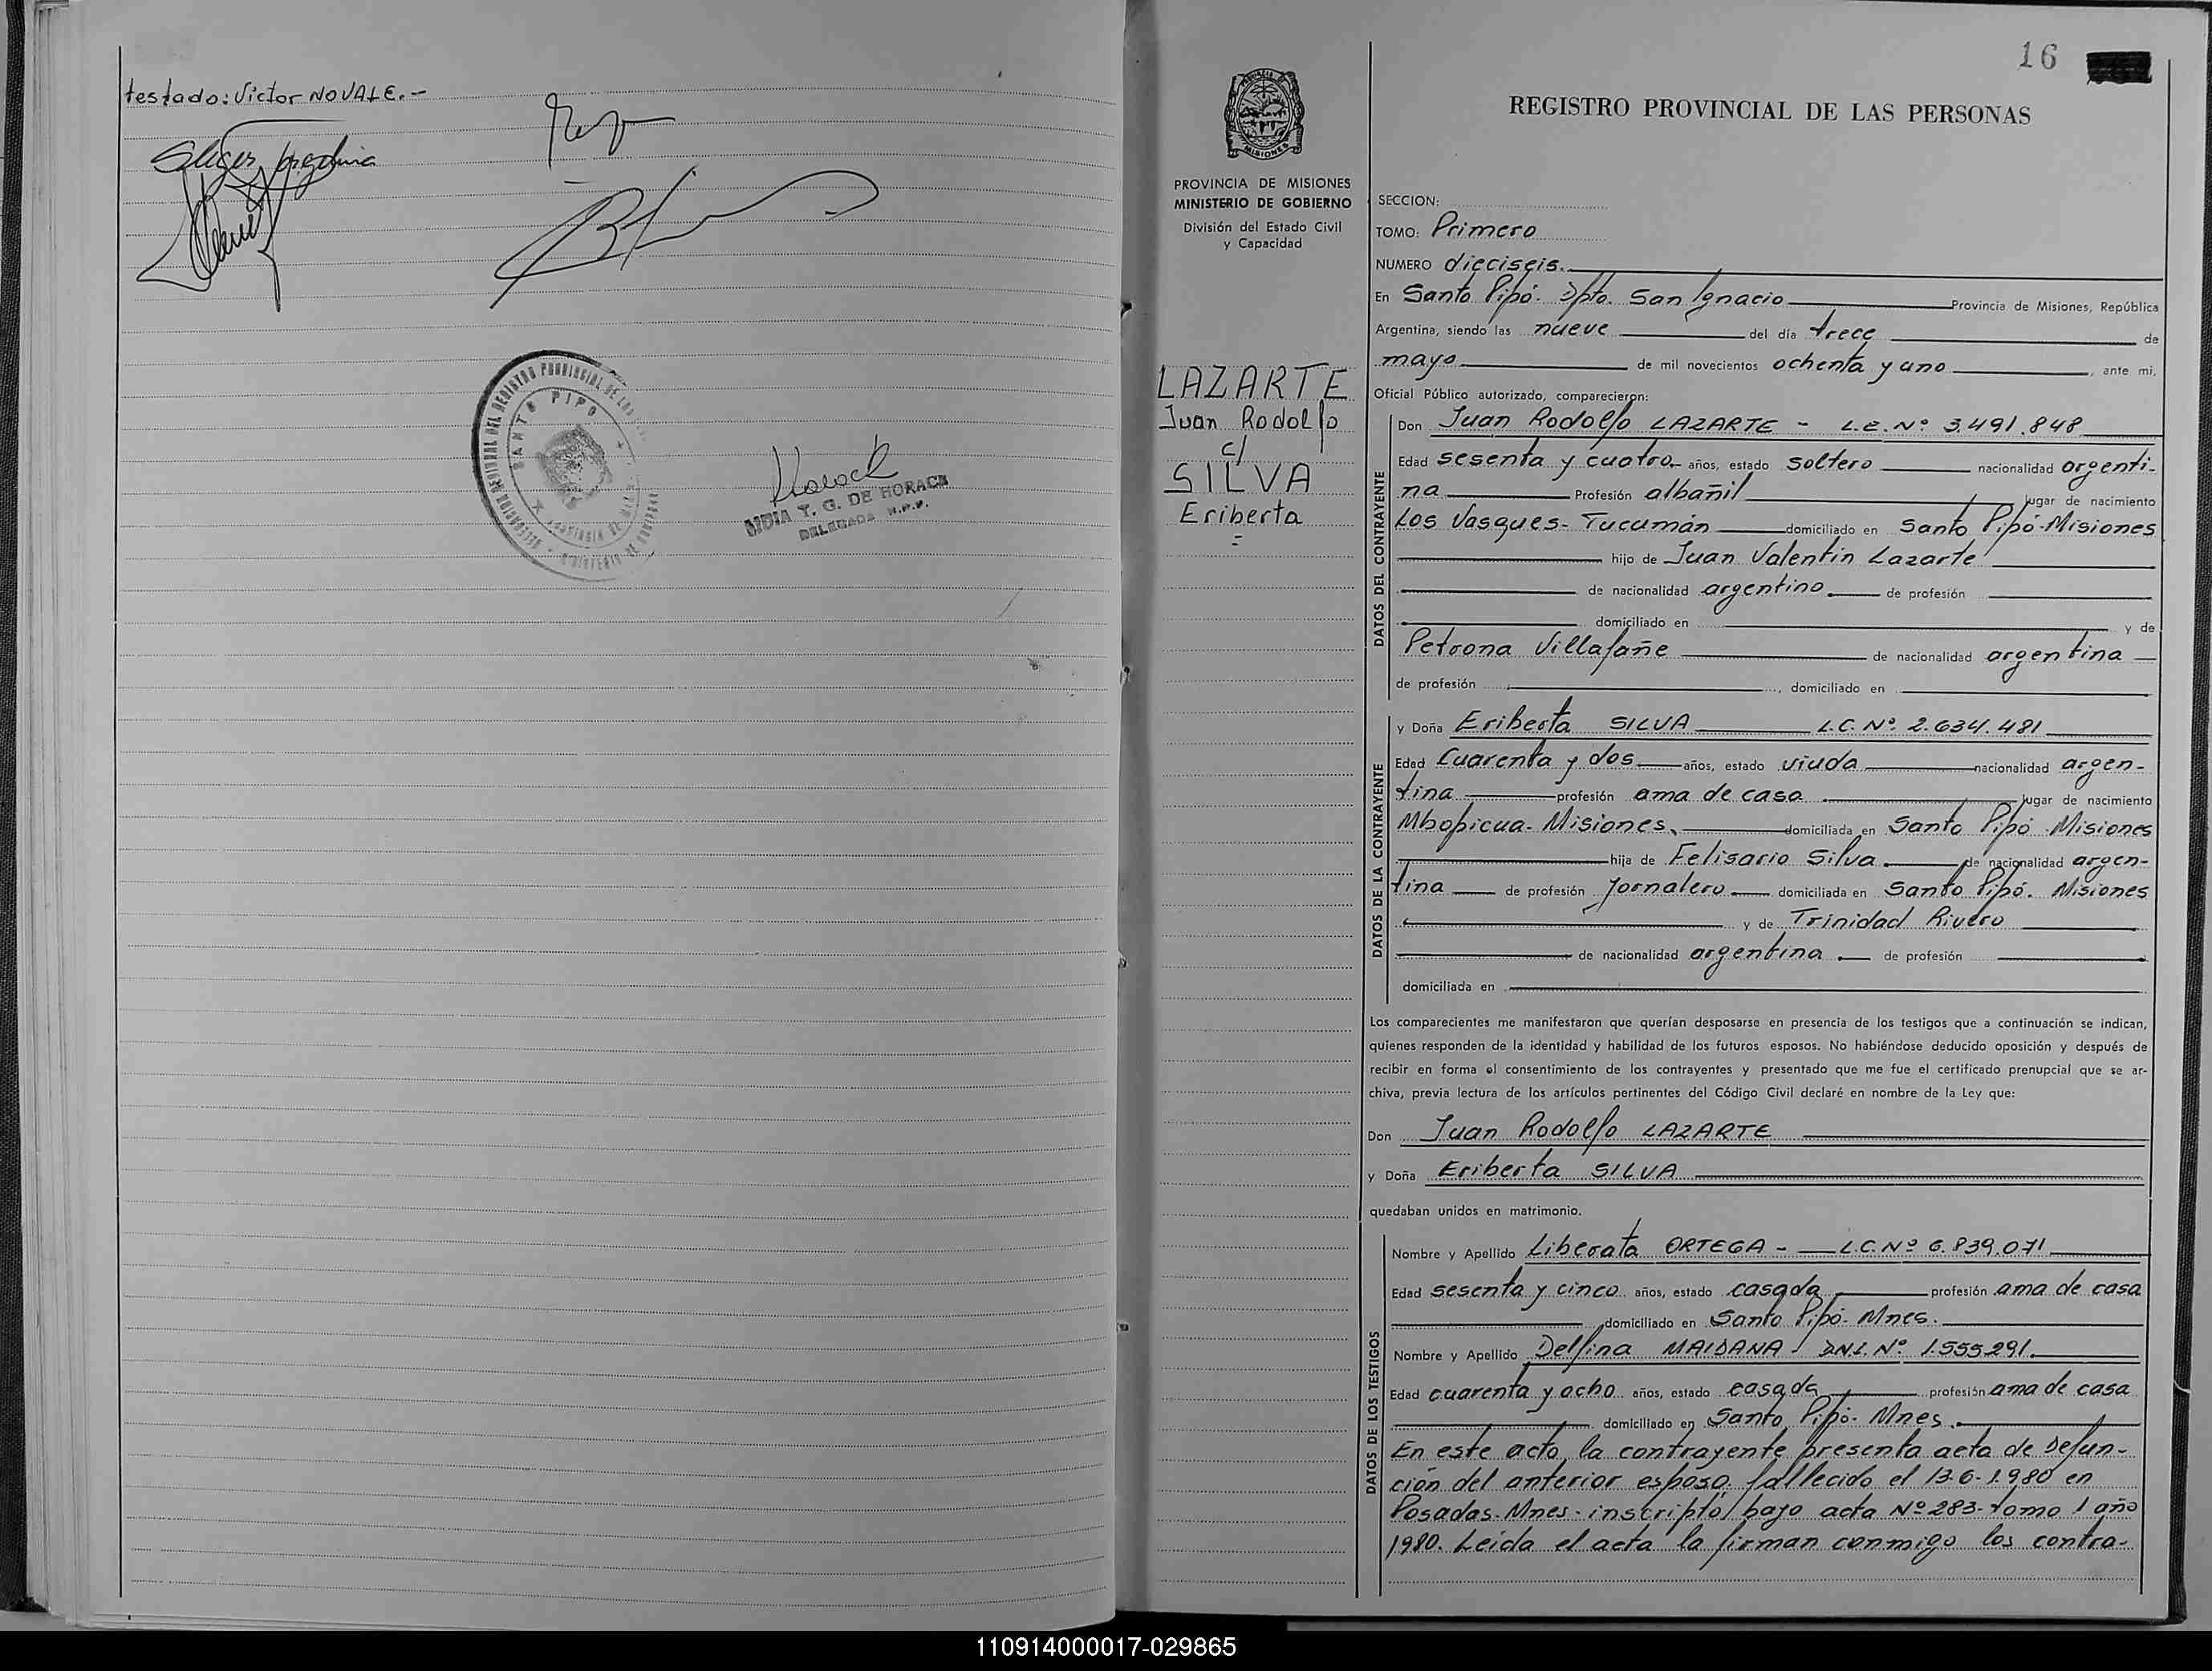 testado: Victor NOVALE.-
SANTO PIPO
LIDIA T. G. DE HORACK
DELEGADA R.P.P.
16
REGISTRO PROVINCIAL DE LAS PERSONAS
MISIONES
PROVINCIA DE MISIONES
MINISTERIO DE GOBIERNO
División del Estado Civil
y Capacidad
LAZARTE
Juan Rodolfo
c/
SILVA
Eriberta
=
SECCION:
TOMO: Primero
NUMERO dieciseis.
En Santo Pipó. Dpto. San Ignacio Provincia de Misiones, República
Argentina, siendo las nueve del día trece de
mayo de mil novecientos ochenta y uno, ante mi,
Oficial Público autorizado, comparecieron:
DATOS DEL CONTRAYENTE
Don Juan Rodolfo LAZARTE - L.E. Nº 3.491.848
Edad sesenta y cuatro años, estado soltero nacionalidad argenti-
na Profesión albañil lugar de nacimiento
Los Vasques- Tucumán domiciliado en Santo Pipó-Misiones
hijo de Juan Valentin Lazarte
de nacionalidad argentino de profesión
domiciliado en y de
Petrona Villafañe de nacionalidad argentina
de profesión , domiciliado en
DATOS DE LA CONTRAYENTE
y Doña Eriberta SILVA L.C. Nº 2.634.481
Edad Cuarenta y dos años, estado viuda nacionalidad argen-
tina profesión ama de casa lugar de nacimiento
Mbopicua- Misiones. domiciliada en Santo Pipó Misiones
hija de Felisario Silva. de nacionalidad argen-
tina de profesión Jornalero domiciliada en Santo Pipó. Misiones
y de Trinidad Rivero
de nacionalidad argentina de profesión
domiciliada en
Los comparecientes me manifestaron que querían desposarse en presencia de los testigos que a continuación se indican,
quienes responden de la identidad y habilidad de los futuros esposos. No habiéndose deducido oposición y después de
recibir en forma el consentimiento de los contrayentes y presentado que me fue el certificado prenupcial que se ar-
chiva, previa lectura de los artículos pertinentes del Código Civil declaré en nombre de la Ley que:
Don Juan Rodolfo LAZARTE
y Doña Eriberta SILVA
quedaban unidos en matrimonio.
DATOS DE LOS TESTIGOS
Nombre y Apellido Liberata ORTEGA - L.C. Nº 6.839.071
Edad sesenta y cinco años, estado casada profesión ama de casa
domiciliado en Santo Pipó- Mnes.
Nombre y Apellido Delfina MAIDANA - DN.I. Nº 1.555.291.
Edad cuarenta y ocho años, estado casada profesión ama de casa
domiciliado en Santo Pipó- Mnes.
En este acto, la contrayente presenta acta de Defun-
ción del anterior esposo, fallecido el 13-6-1.980 en
Posadas-Mnes-inscripto bajo acta Nº 283-tomo 1 año
1980. Leída el acta la firman conmigo los contra-
110914000017-029865